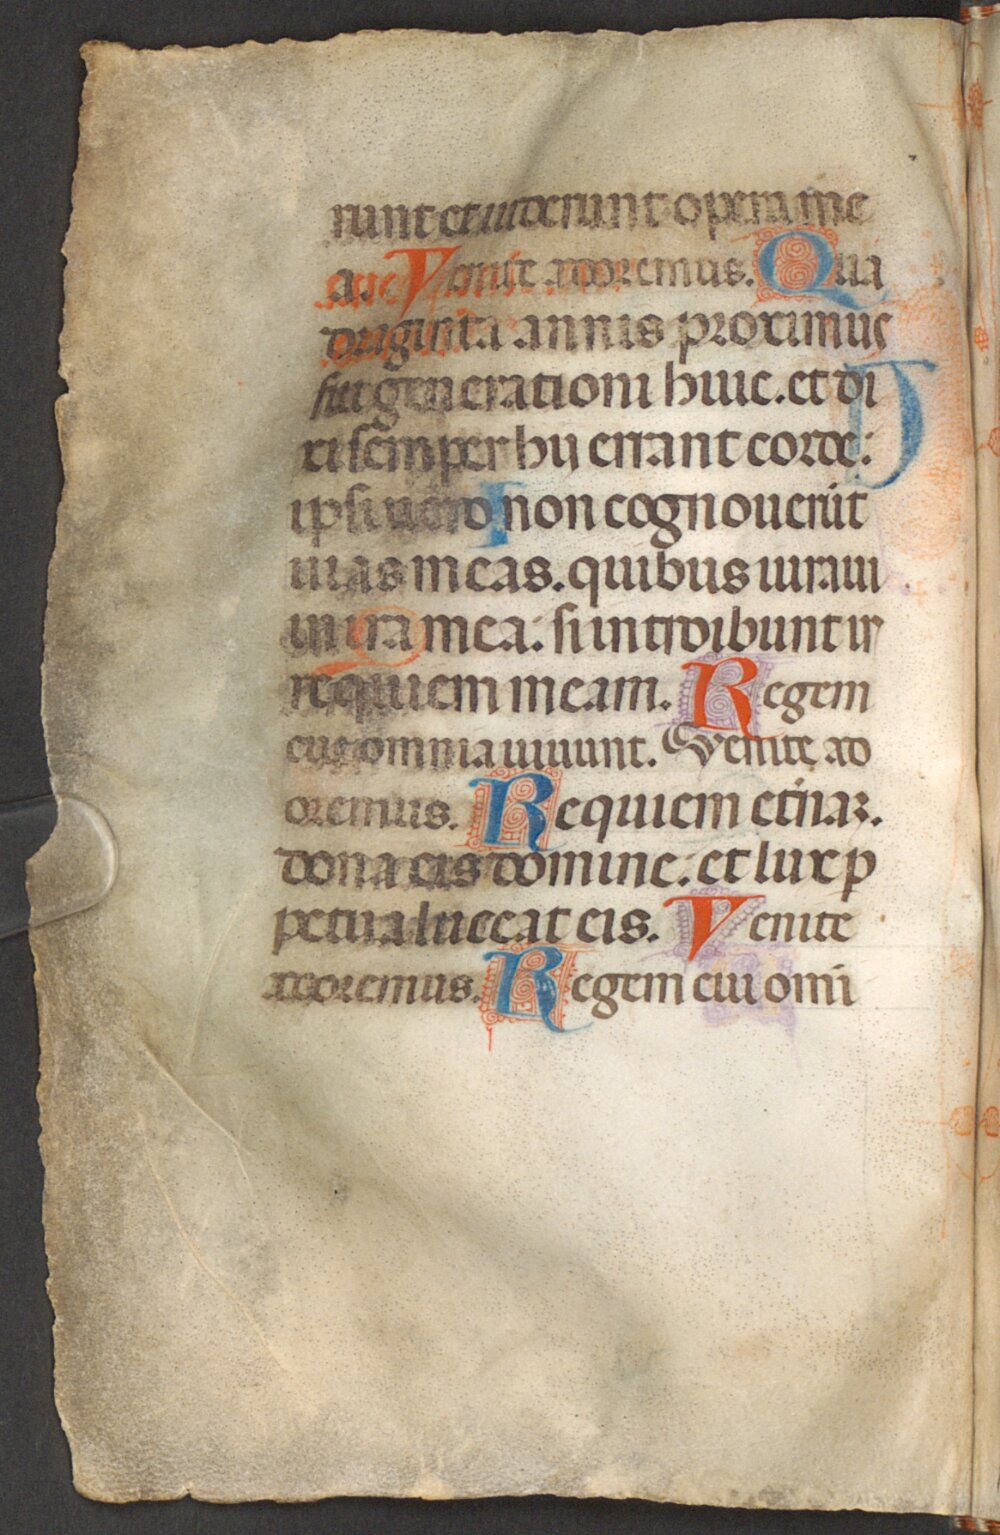 runt et uiderunt opera me
a. Venite adoremus. Qua
draginta annis proximus
fui generationi huic. et di
xi semper hij errant corde:
ipsi uero non cognouerūt
uias meas. quibus iuraui
in ira mea: si introibunt in
requiem meam. Regem
cui omnia uiuunt. Venite ad
oremus. Requiem etnaꝫ.
dona eis domine: et lux ꝑ
petua luceat eis. Venite
adoremus. Regem cui omī